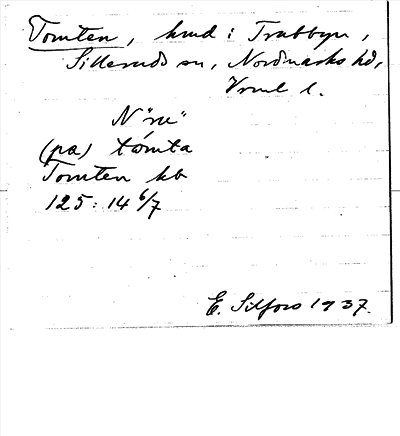 Tomten, hmd i Trabbyn,
Silleruds sn, Nordmarks hd,
Vrml l.
N "ru"
(pa) tómta
Tomten kb
125:14 6/7
E. Silfors 1937.